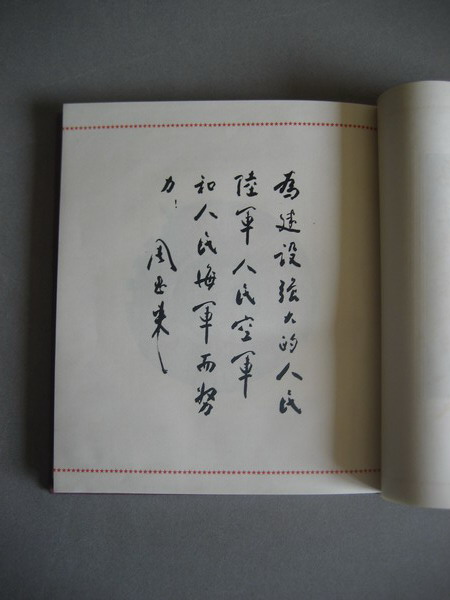 為建設强大的人民
陸軍人民空軍
和人民海軍而努
力！
周恩来